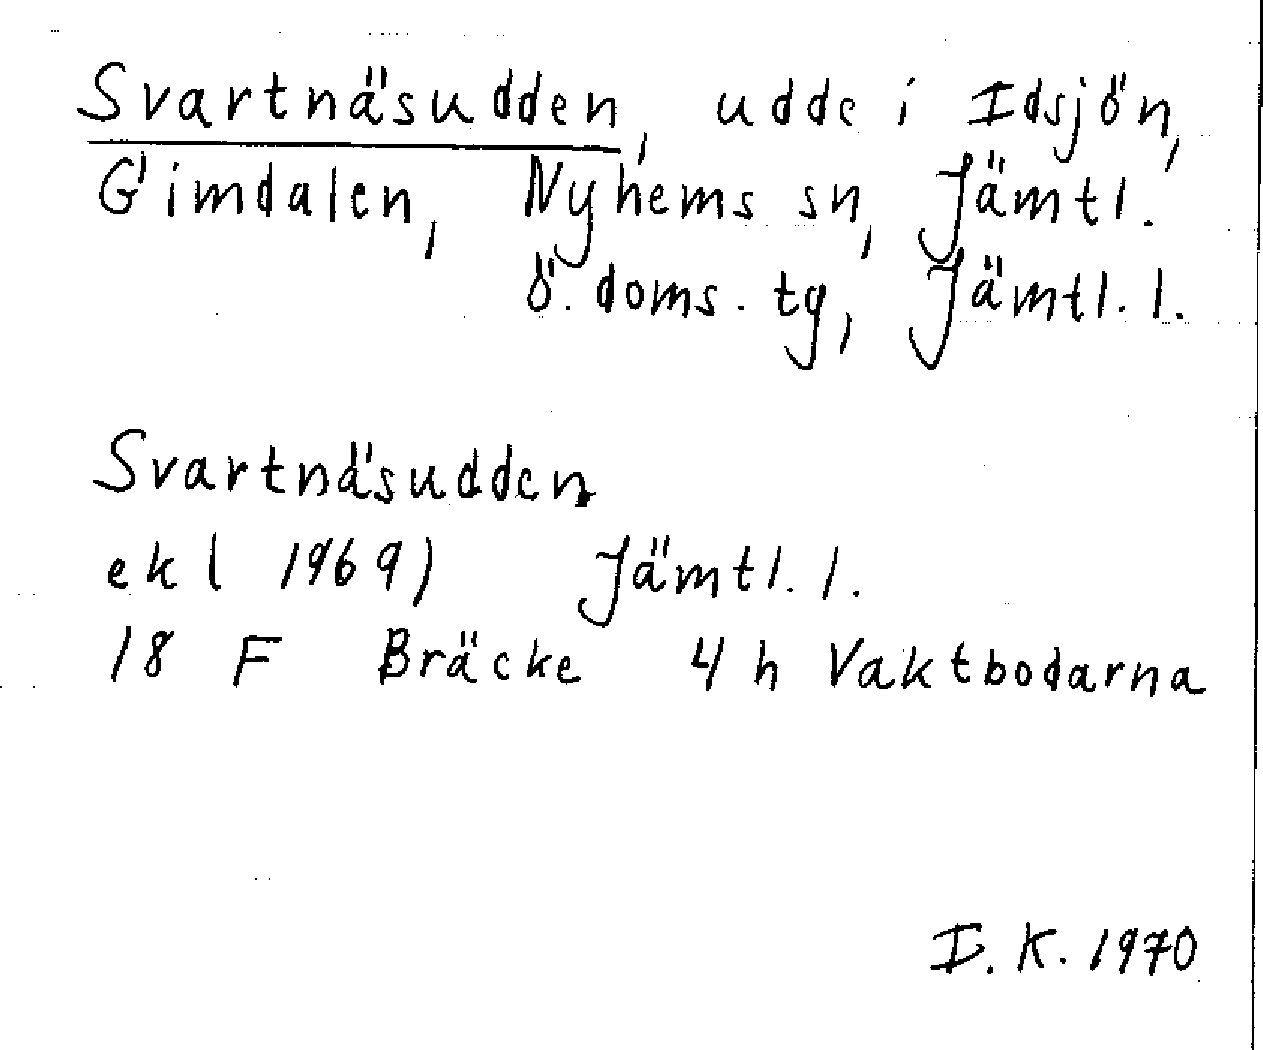 Svartnäsudden, udde i Idsjön,
Gimdalen, Nyhems sn, Jämtl.
ö. doms. tg, Jämtl. l.
Svartnäsudden
ekl 1969) Jämtl. l.
18 F Bräcke 4 h Vaktbodarna
I. K. 1970